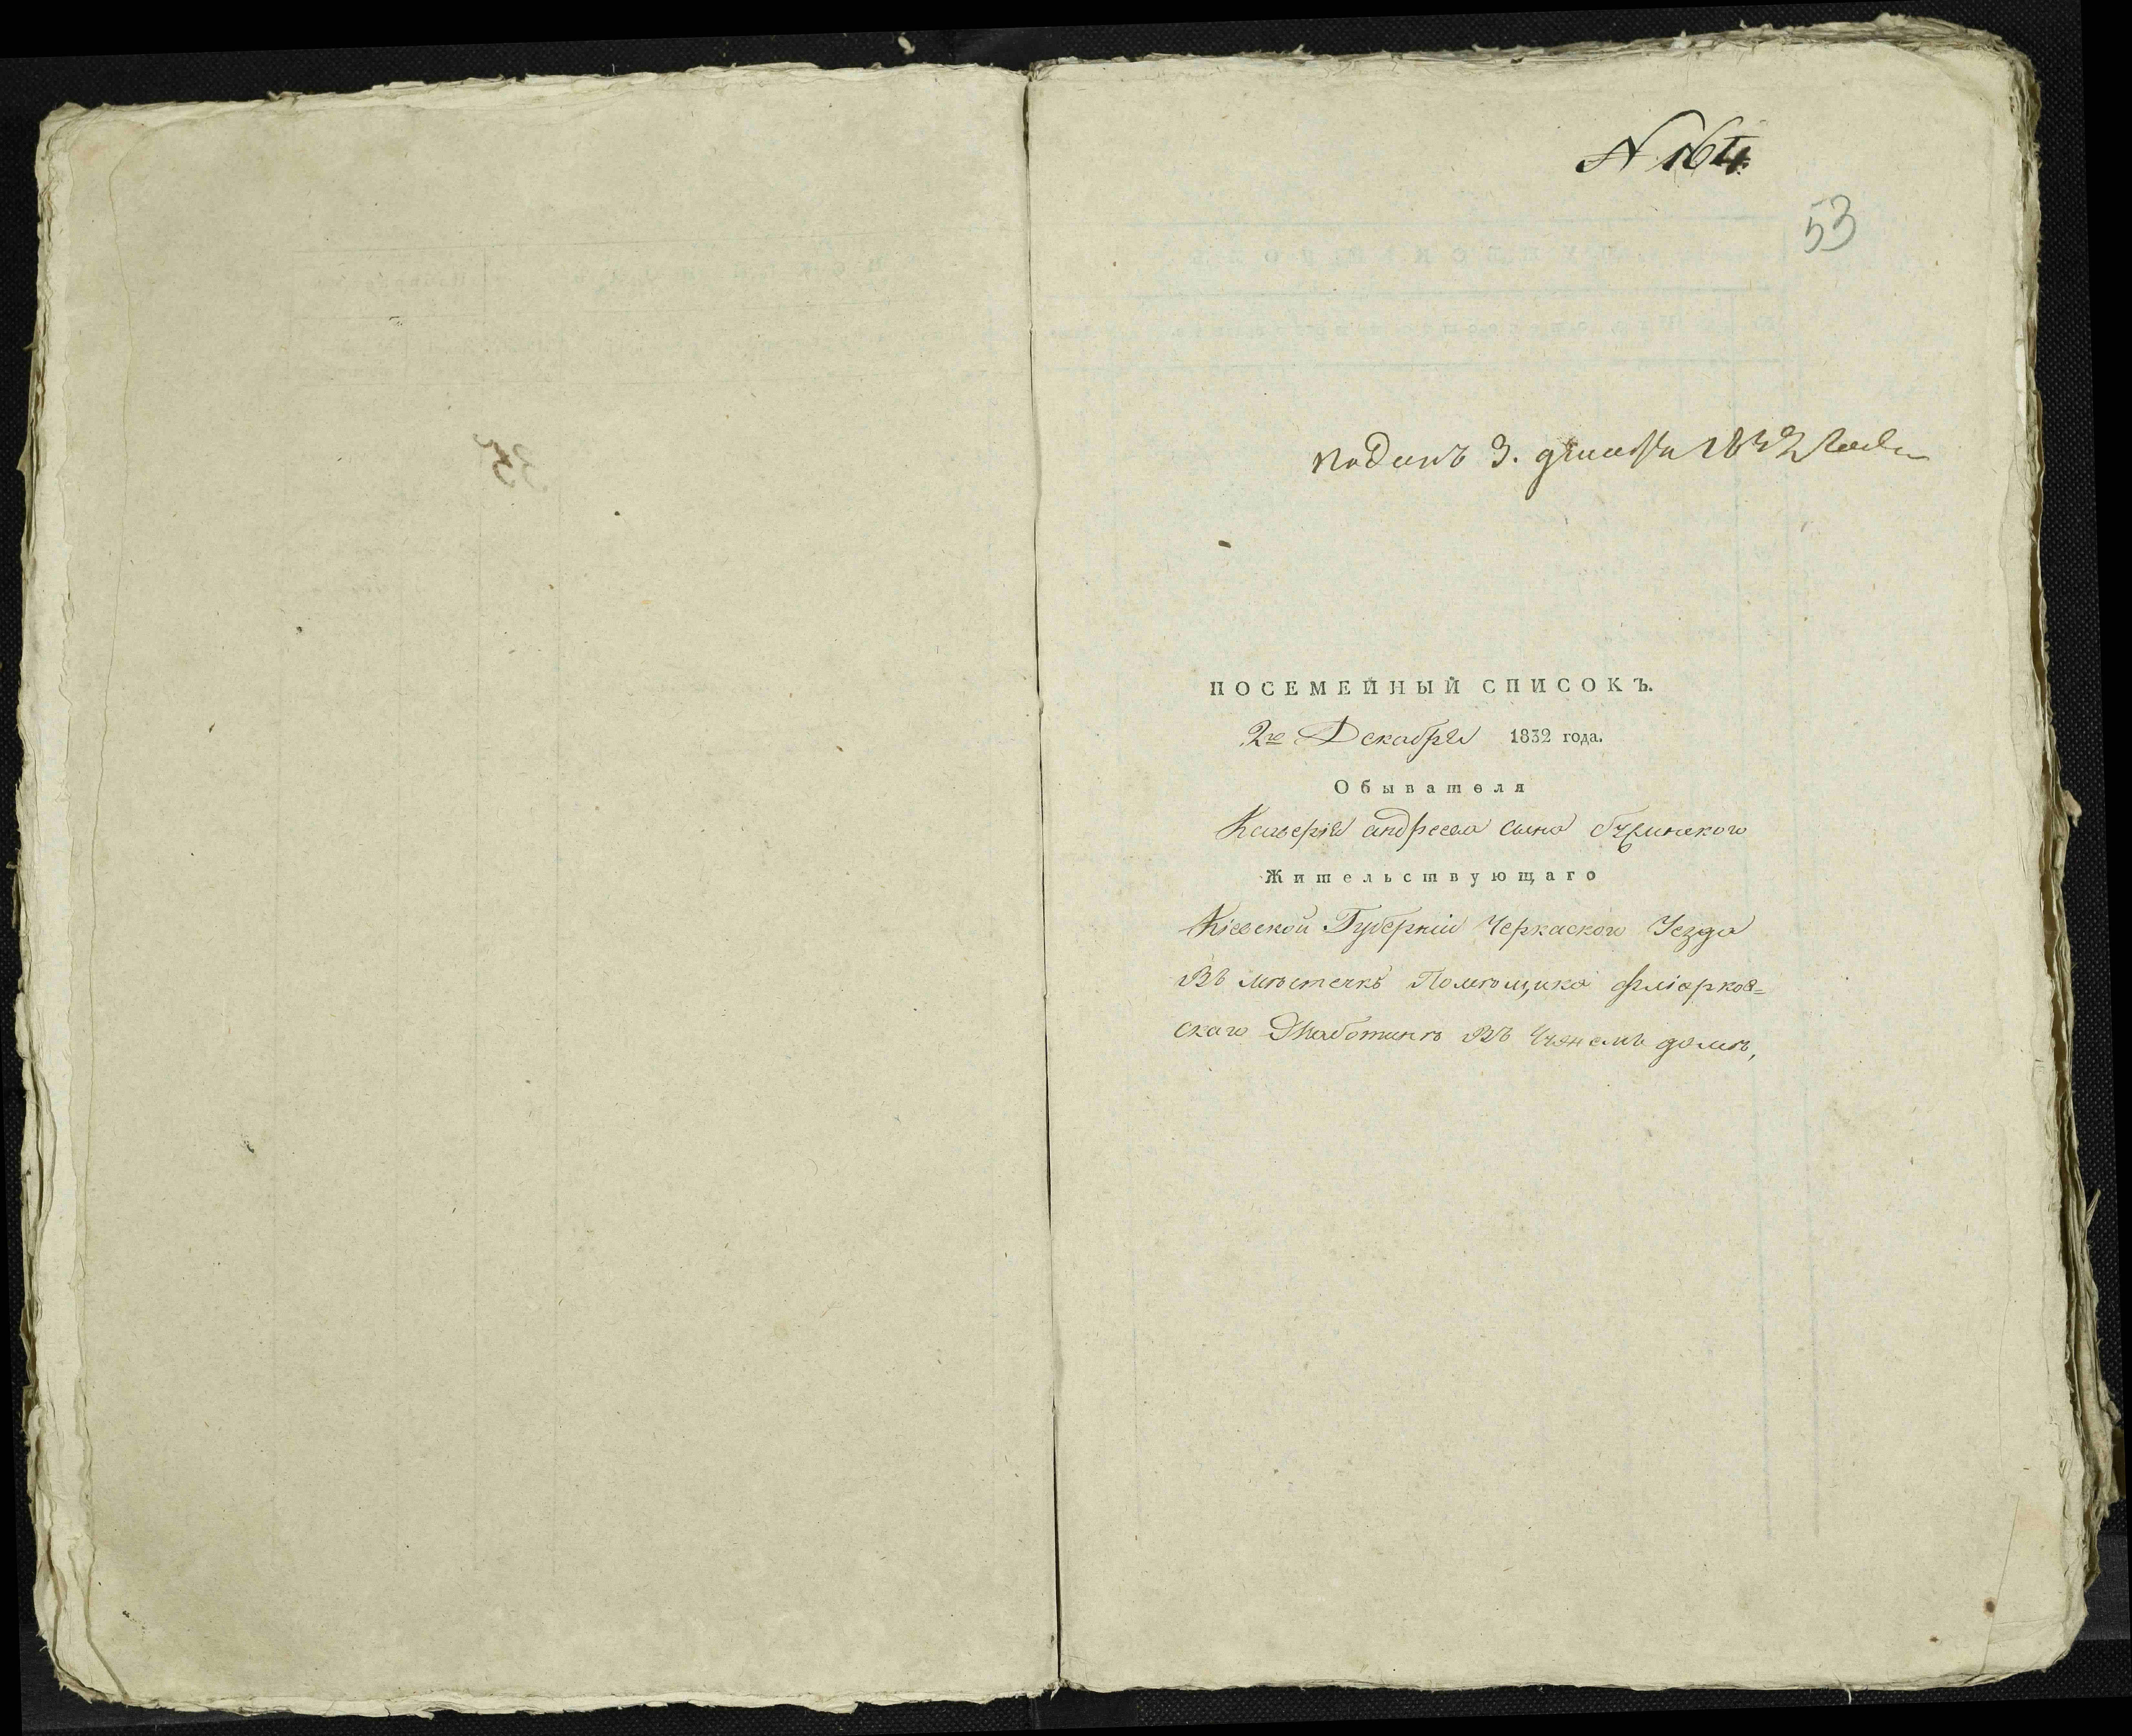 N 164.
53
поданъ 3. декабря 1832 года
ПОСЕМЕЙНЫЙ СПИСОКЪ.
2го Декабря 1832 года.
Обывателя
Каверія андреева сына
Жительствующаго
Кіевской Губерніи Черкаского Уезда
Въ местечкѣ Помѣщика
скаго Жаботинѣ Въ домѣ,